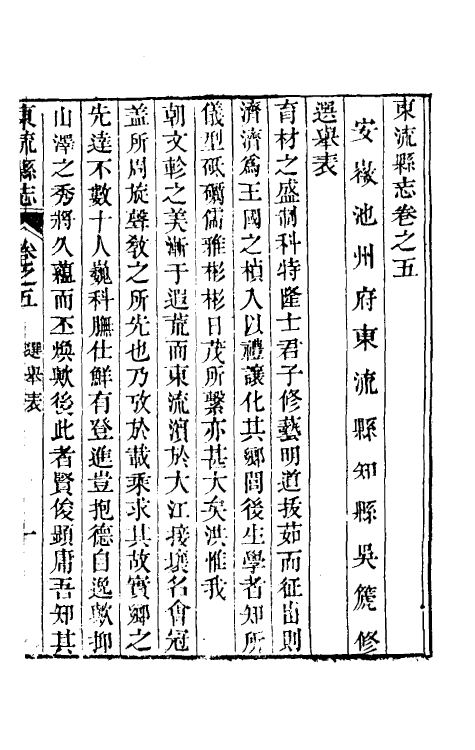 東流縣志卷之五
安徽池州府東流縣知縣吳篪修
選舉表
育材之盛制科特隆士君子修藝明道拔茹而征出則
濟濟爲王國之楨入以禮讓化其鄉閭後生學者知所
儀型砥礪儒雅彬彬日茂所繫亦甚大矣洪惟我
朝文軫之美漸于遐荒而東流濱於大江接壤名會冠
蓋所周旋聲敎之所先也乃攷於載乘求其故實鄉之
先達不數十人巍科膴仕鮮有登進豈抱德自逸歟抑
山澤之秀將久蘊而丕煥歟後此者賢俊顕庸吾知其
東流縣志 卷之五 選舉表 一